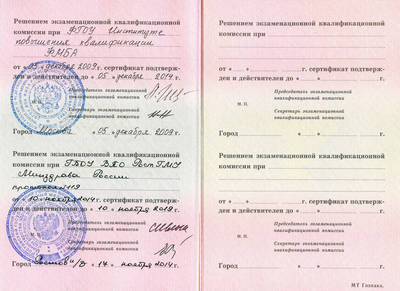 Решением экзаменационной квалификационной
комиссии при ФГОУ Институте
повышения квалификации
ФМБА
от «05» декабря 2009г. сертификат подтверж-
ден и действителен до «05» декабря 2014г.
Председатель экзаменационной
квалификационной комиссии
М. П.
Секретарь экзаменационной
квалификационной комиссии
Город Москва «05» декабря 2009г.
Решением экзаменационной квалификационной
комиссии при ГБОУ ВПО РостГМУ
Минздрава России
протокол №119
от «10» ноября 2014г. сертификат подтверж-
ден и действителен до «10» ноября 2019г.
Председатель экзаменационной
квалификационной комиссии
М. П.
Секретарь экзаменационной
квалификационной комиссии
Город Ростов н/Д «14» ноября 2014г.
Решением экзаменационной квалификационной
комиссии при
от « » г. сертификат подтверж-
ден и действителен до « » г.
Председатель экзаменационной
квалификационной комиссии
М. П.
Секретарь экзаменационной
квалификационной комиссии
Город « » г.
Решением экзаменационной квалификационной
комиссии при
от « » г. сертификат подтверж-
ден и действителен до « » г.
Председатель экзаменационной
квалификационной комиссии
М. П.
Секретарь экзаменационной
квалификационной комиссии
Город « » г.
МТ Гознака.